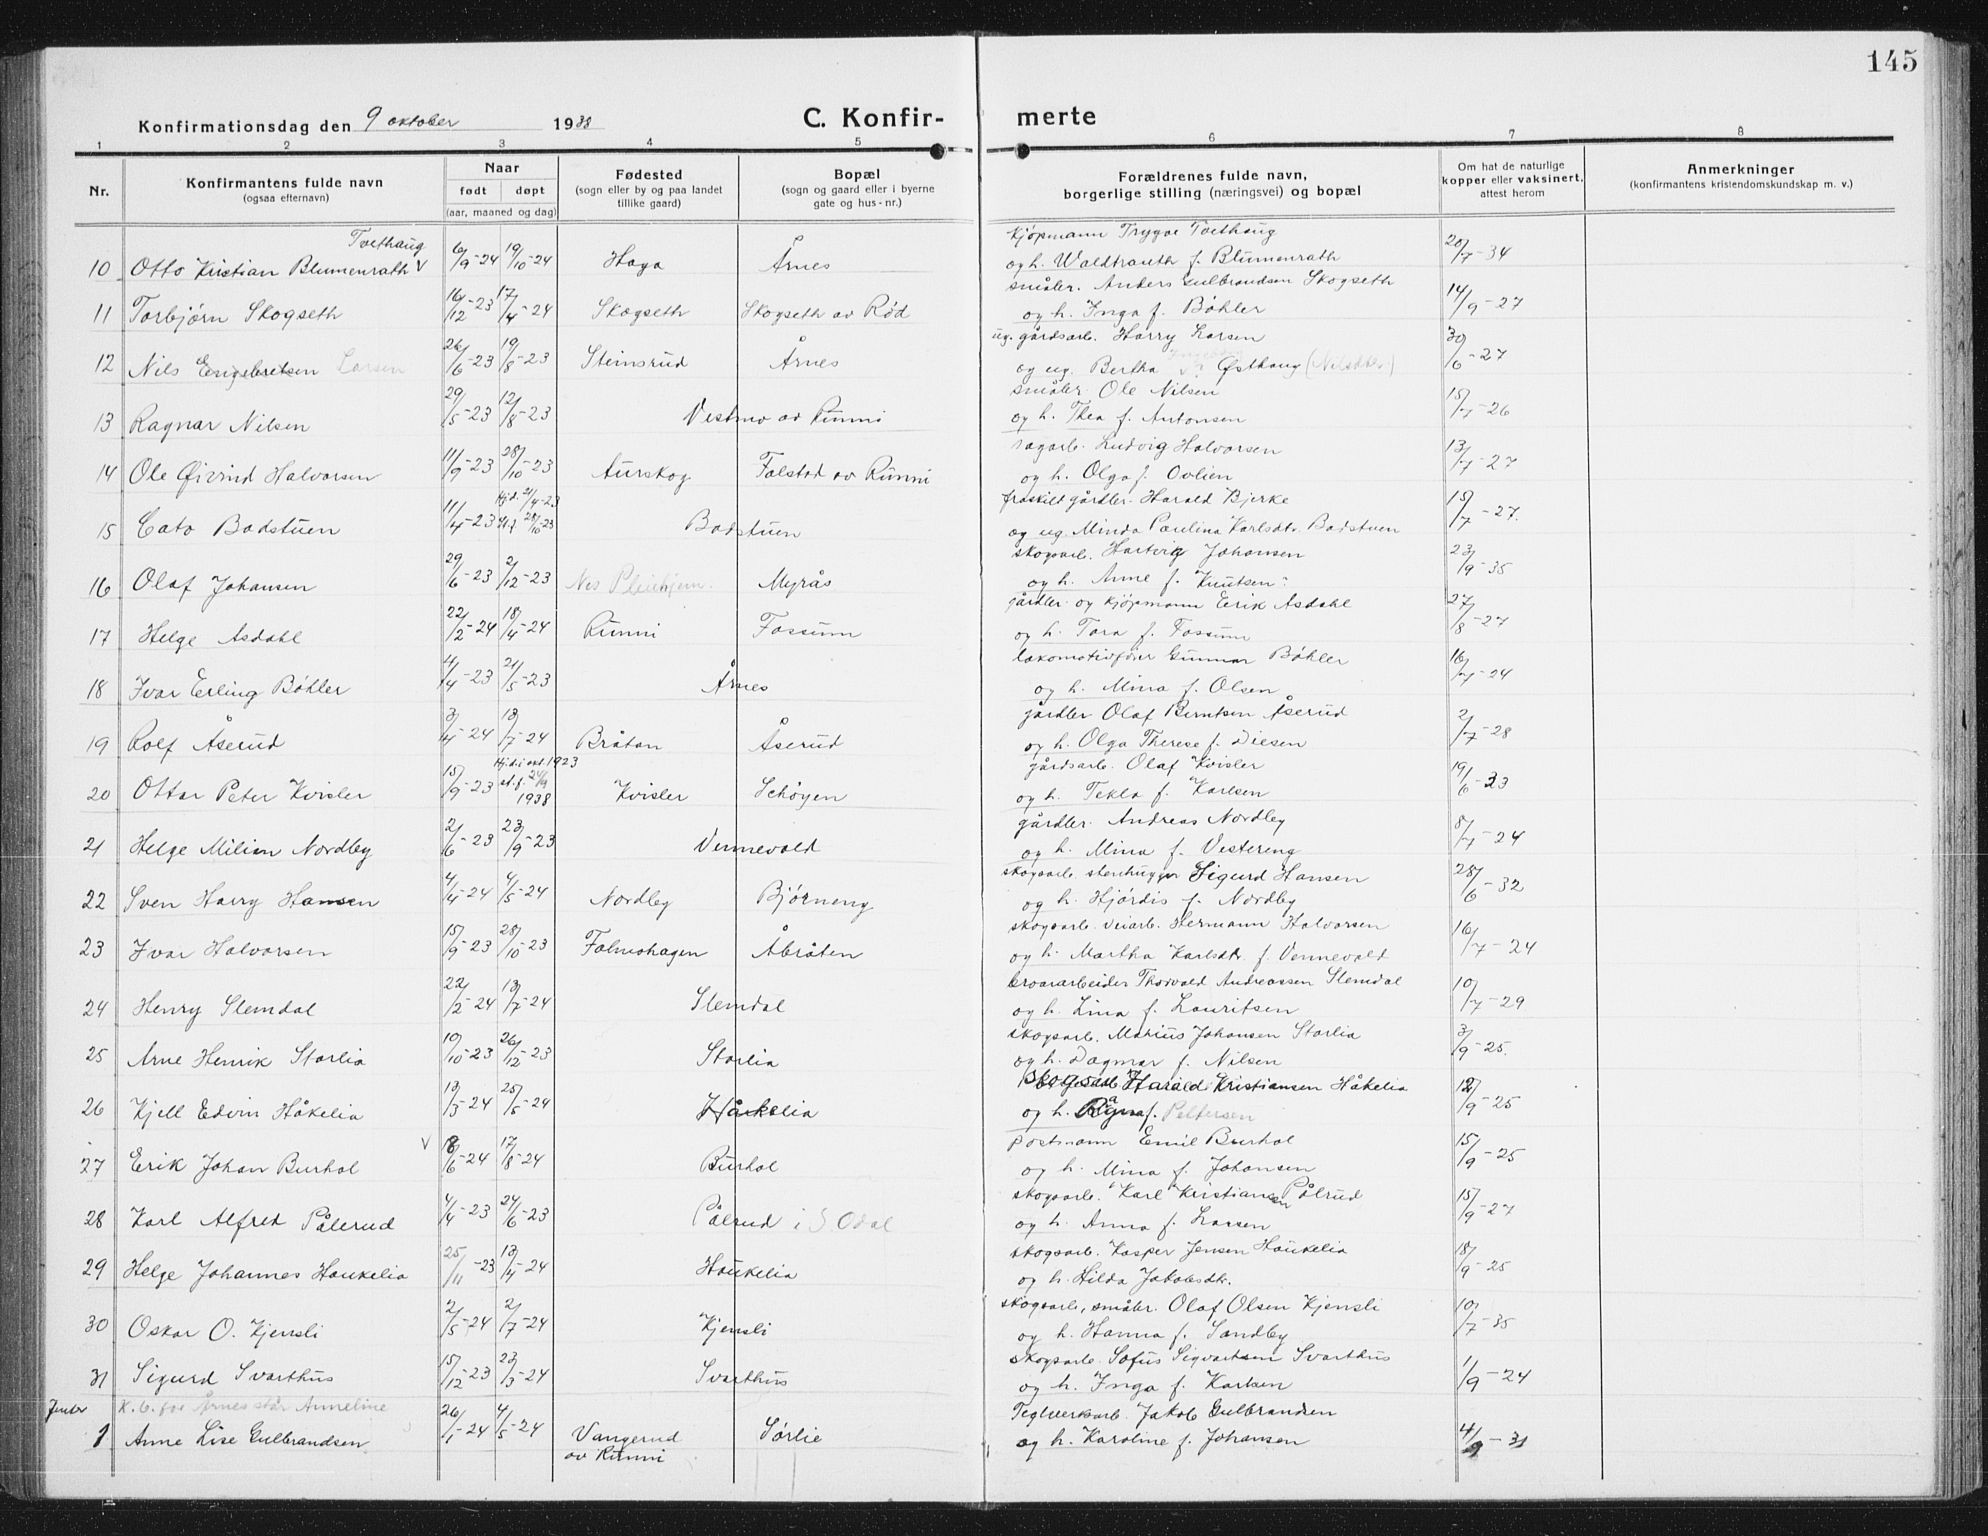 145
Konfirmationsdag den 9 oktober 1938 C. Konfir- merte
1 2 3 4 5 6 7 8
Nr. Konfirmantens fulde navn (ogsaa efternavn) Naar født døpt (aar, maaned og dag) Fødested (sogn eller by og paa landet tillike gaard) Bopæl (sogn og gaard eller i byerne gate og hus-nr.) Forældrenes fulde navn, borgerlige stilling (næringsvei) og bopæl Om hat de naturlige kopper eller vaksinert, attest herom Anmerkninger (konfirmantens kristendomskundskap m. v.)
Tvethaug kjøpmann Trygve Tvethaug
10 Otto Kristian Blumenrath V 6/9-24 19/10-24 Haga Årnes og h. Waldtrauth f. Blumenrath 20/7-34
småbr. Anders Gulbrandsen Skogseth
11 Torbjørn Skogseth 16/12-23 17/4-24 Skogseth Skogseth av Rød og h. Inga f. Böhler 14/9-27
ug. gårdsarb. Harry Larsen
12 Nils Engebretsen Larsen 26/6-23 19/8-23 Steinsrud Årnes og ug. Bertha Østhaug (Nilsdtr.) 30/6-27
småbr. Ole Nilsen
13 Ragnar Nilsen 29/5-23 12/8-23 Vestmo av Runni og h. Thea f. Antonsen 15/7-26
sagarb. Ludvig Halvorsen
14 Ole Øivind Halvorsen 11/9-23 28/10-23 Aurskog Falstad av Runni og h. Olga f. Ovlien 13/7-27
fraskilt gårdbr. Harald Bjerke
15 Cato Badstuen 11/4-23 Hjd. 21/4-23 28/10-23 Badstuen og ug. Minda Paulina Karlsdtr. Badstuen 15/7-27.
skogsarb. Hartvig Johansen
16 Olaf Johansen 29/6-23 2/12-23 Nes Pleiehjem. Myrås og h. Anne f. Knutsen 23/9-35
gårdbr. og kjøpmann Erik Asdahl
17 Helge Asdahl 22/2-24 18/4-24 Runni Fossum og h. Tora f. Fossum 27/8-27
lokomotivfører Gunnar Böhler
18 Ivar Erling Böhler 4/4-23 21/5-23 Årnes og h. Mina f. Olsen 16/7-24
gårdbr Olaf Berntsen Åserud
19 Rolf Åserud 3/4-24 13/7-24 Bråtan Åserud og h. Olga Therese f. Diesen 2/7-28
gårdsarb. Olaf Kvisler
20 Ottar Peter Kvisler 15/9-23 Hjd. i okt. 1923 st.f. 24/9 1938 Kvisler Schøyen og h. Tekla f. Karlsen 19/6-33
gårdbr. Andreas Nordby
21 Helge Milian Nordby 2/6-23 23/9-23 Vennevold og h. Mina f. Vestereng 8/7-24
skogsarb. stenhugger Sigurd Hansen
22 Sven Harry Hansen 4/4-24 4/5-24 Nordby Bjørneng og h. Hjørdis f. Nordby 28/6-32
skogsarb. veiarb. Hermann Halvorsen
23 Ivar Halvorsen 15/9-23 28/10-23 Falmohagen Åbråten og h. Martha Karlsdtr. f. Vennevold 16/7-24
kroararbeider Thorvald Andreassen Slemdal
24 Henry Slemdal 22/2-24 13/7-24 Slemdal og h. Lina f. Lauritsen 10/7-29
skogsarb. Marius Johansen Storlia
25 Arne Henrik Storlia 10/10-23 26/12-23 Storlia og h. Dagmar f. Nilsen 3/9-25.
Skogsarb Harald Kristiansen Håkelia
26 Kjell Edvin Håkelia 13/3-24 25/5-24 Håkelia og h. Ragna f. Pettersen 12/9-25
postmann Emil Burhol
27 Erik Johan Burhol V 8/6-24 17/8-24 Burhol og h. Mina f. Johansen 15/9-25
skogsarb. Karl Kristiansen Pålrud
28 Karl Alfred Pålerud 4/4-23 24/6-23 Pålrud i S. Odal og h. Anna f. Larsen 15/9-27
skogsarb. Kasper Jensen Haukelia
29 Helge Johannes Haukelia 25/11-23 13/4-24 Haukelia og h. Hilda Jakobsdtr. 18/9-25
skogsarb, småbr. Olaf Olsen Kjensli
30 Oskar O. Kjensli 2/5-24 2/7-24 Kjensli og h. Hanna f. Sandby 10/7-35
skogsarb. Sofus Sigvartsen Svarthus
31 Sigurd Svarthus 15/12-23 23/3-24 Svarthus og h. Inga f. Karlsen 1/9-24
Jenter K. b. for Årnes står Anneline Teglverksarb. Jakob Gulbrandsen
1 Anne Lise Gulbrandsen 26/1-24 4/5-24 Vangerud av Runni Sørlie og h. Karoline f. Johansen 4/9-31